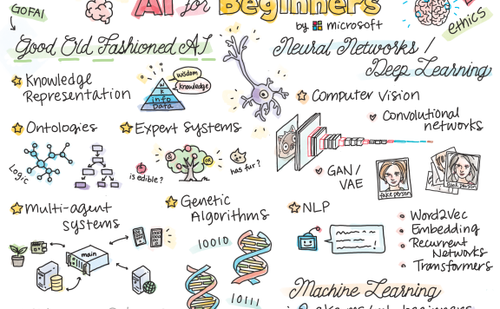 AI for Beginners
by microsoft
GOFAI
ethics
Good Old Fashioned AI
Knowledge
Representation
wisdom
knowledge
K
info
data
Ontologies
Logic
Expert Systems
is edible?
has fur?
Multi-agent
systems
main
Genetic
Algorithms
10010
10111
Neural Networks /
Deep Learning
Computer Vision
Convolutional
networks
GAN/
VAE
fake person
NLP
Word2Vec
Embedding
Recurrent
Networks
Transformers
Machine Learning